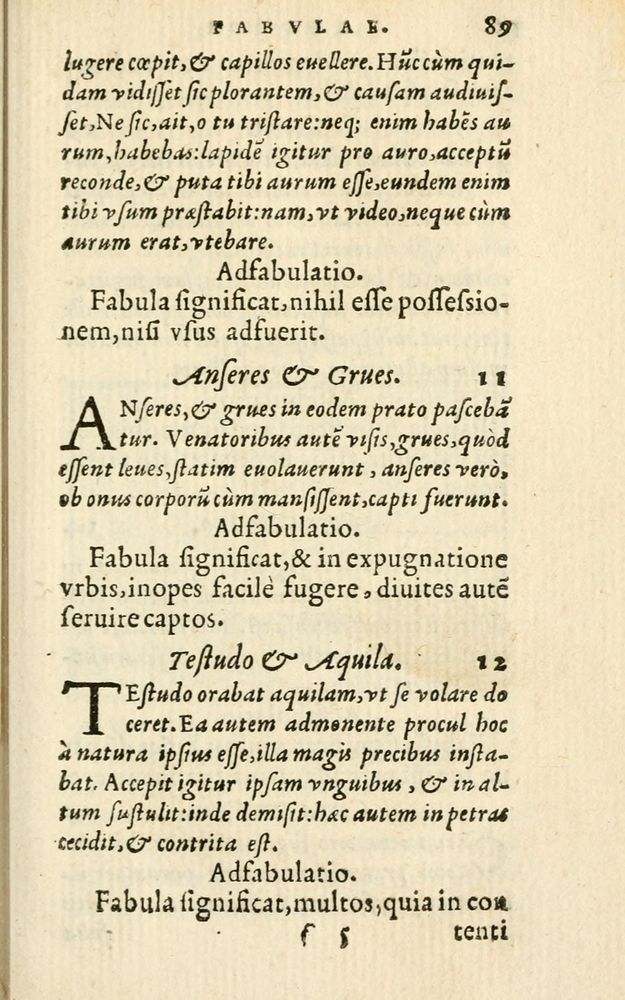 FABVLAE. 89
lugere cœpit, & capillos euellere. Hūc cùm qui-
dam vidiſſet ſic plorantem, & cauſam audiuiſ-
ſet, Ne ſic, ait, o tu triſtare: neq; enim habēs au
rum, habebas: lapidē igitur pro auro, acceptū
reconde, & puta tibi aurum eſſe, eundem enim
tibi vſum præſtabit: nam, vt video, neque cùm
aurum erat, vtebare.
Adfabulatio.
Fabula ſignificat, nihil eſſe poſſeſsio-
nem, niſi vſus adfuerit.
Anſeres & Grues. 11
ANſeres, & grues in eodem prato paſcebā
tur. Venatoribus autē viſis, grues, quòd
eſſent leues, ſtatim euolauerunt, anſeres verò,
ob onus corporū cùm manſiſſent, capti fuerunt.
Adfabulatio.
Fabula ſignificat, & in expugnatione
vrbis, inopes facilè fugere, diuites autē
ſeruire captos.
Teſtudo & Aquila. 12
TEſtudo orabat aquilam, vt ſe volare do
ceret. Ea autem admonente procul hoc
à natura ipſius eſſe, illa magis precibus inſta-
bat. Accepit igitur ipſam vnguibus, & in al-
tum ſuſtulit: inde demiſit: hæc autem in petras
cecidit, & contrita eſt.
Adfabulatio.
Fabula ſignificat, multos, quia in con
f 5 tenti